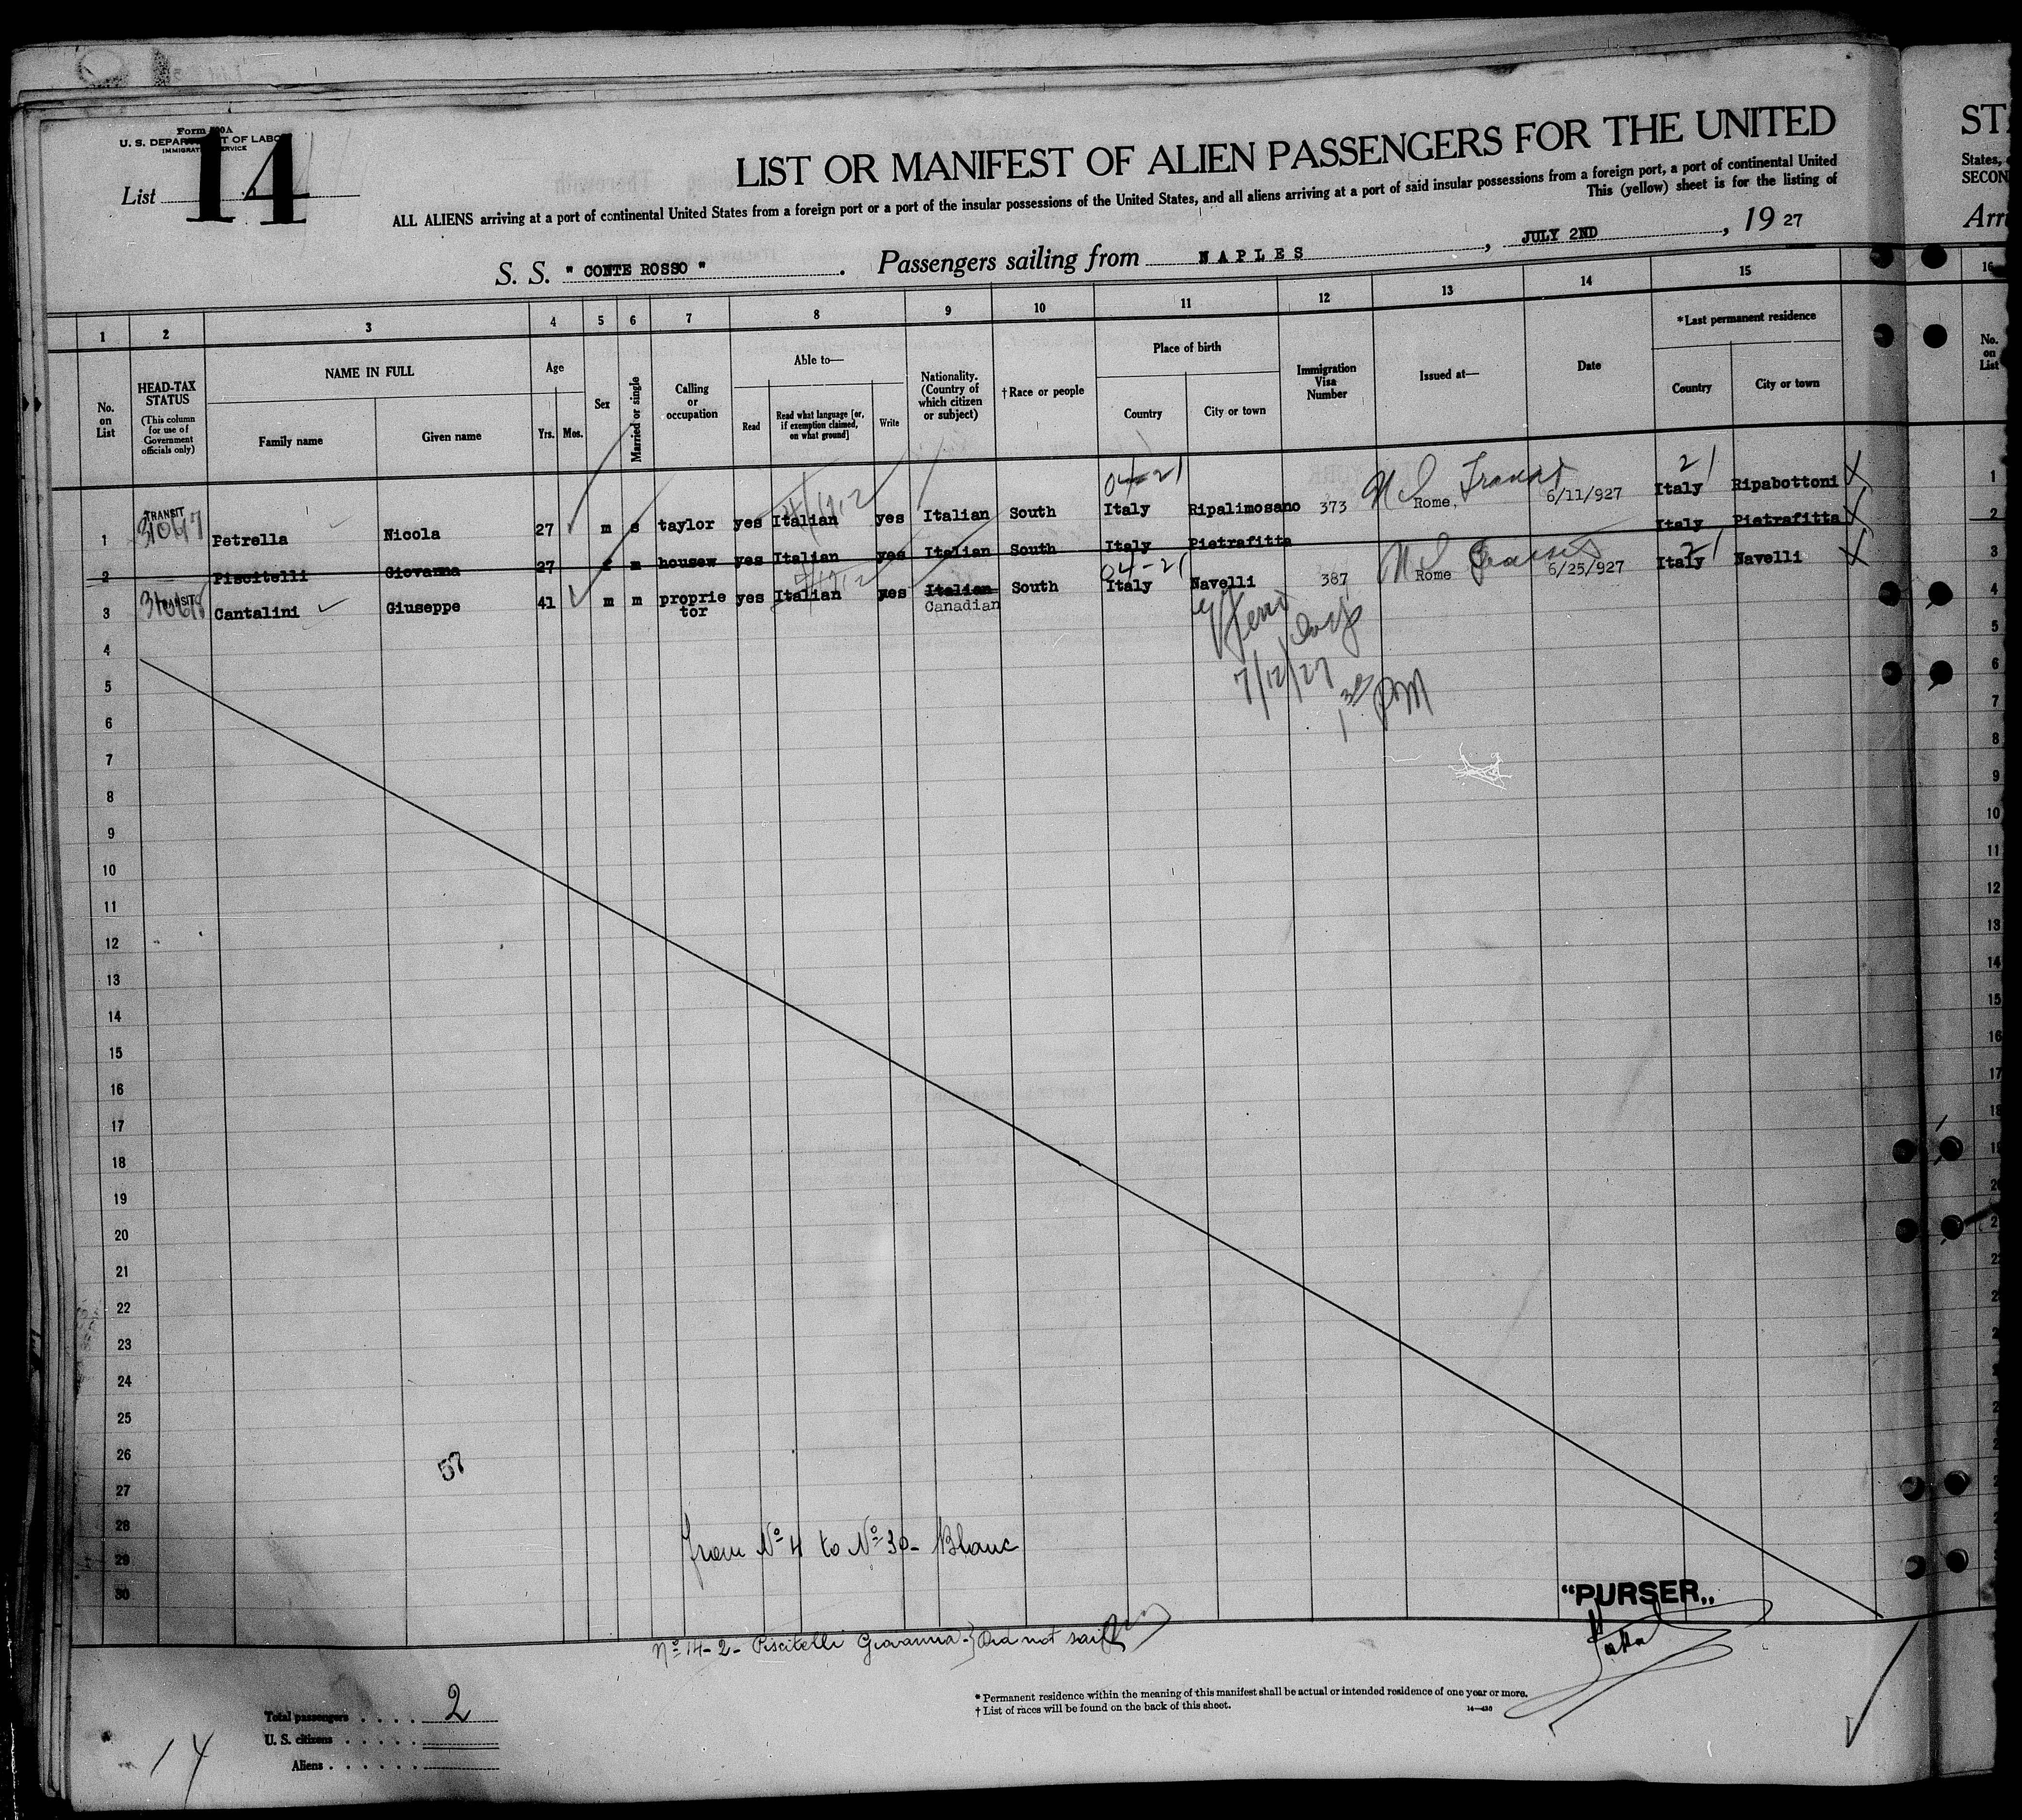 Form 500A
U. S. DEPARTMENT OF LABOR
IMMIGRATION SERVICE
List 14
LIST OR MANIFEST OF ALIEN PASSENGERS FOR THE UNITED
ALL ALIENS arriving at a port of continental United States from a foreign port or a port of the insular possessions of the United States, and all aliens arriving at a port of said insular possessions from a foreign port, a port of continental United
This (yellow) sheet is for the listing of
S. S. " CONTE ROSSO " . Passengers sailing from NAPLES , JULY 2ND , 19 27
ST
States,
SECON
Arri
1 2 3 4 5 6 7 8 9 10 11 12 13 14 15 16
No. on List
HEAD-TAX STATUS
(This column for use of Government officials only)
NAME IN FULL
Family name Given name
Age
Yrs. Mos.
Sex
Married or single
Calling or occupation
Able to—
Read
Read what language [or, if exemption claimed, on what ground]
Write
Nationality. (Country of which citizen or subject)
†Race or people
Place of birth
Country City or town
Immigration Visa Number
Issued at—
Date
*Last permanent residence
Country City or town
No. on List
04-21 21
1 TRANSIT Petrella Nicola 27 m s taylor yes Italian yes Italian South Italy Ripalimosano 373 Rome, Transit 6/11/927 Italy Ripabottoni 1
2 Piscitelli Giovanna 27 f m housew yes Italian yes Italian South Italy Pietrafitta Italy Pietrafitta 2
04-21 21
3 TRANSIT Cantalini Giuseppe 41 m m proprietor yes Italian yes Italian South Italy Navelli 387 Rome Transit 6/25/927 Italy Navelli 3
Canadian
7/12/27
1 30 PM
4 4
5 5
6 6
7 7
8 8
9 9
10 10
11 11
12 12
13 13
14 14
15 15
16 16
17 17
18 18
19
20
21
22
23
24
25
26
57
27
28
from Nº 4 to Nº 30- Blanc
29
30
"PURSER„
Nº 14-2- Piscitelli Giovanna-} Did not sail
* Permanent residence within the meaning of this manifest shall be actual or intended residence of one year or more.
† List of races will be found on the back of this sheet.
14—430
Total passengers . . . . 2
U. S. citizens . . . . .
Aliens . . . . . .
14